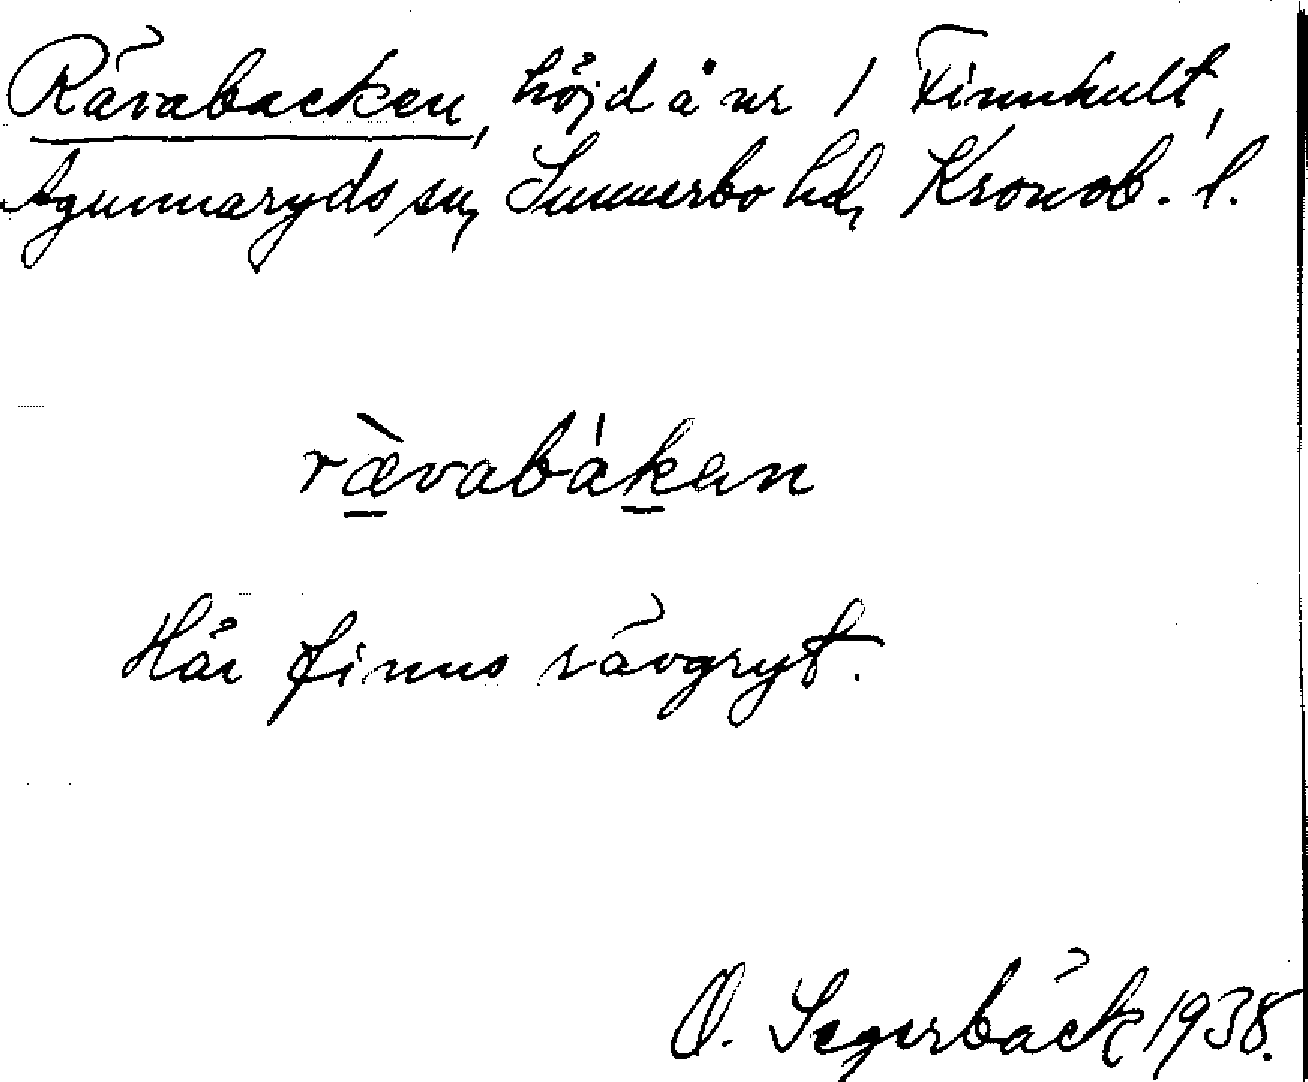 Rävabacken, höjd å nr 1 Finnhult,
Agunnaryds sn, Sunnerbo hd, Kronob. l.
rævabakan
Här finns rävgryt.
O. Segerbäck 1938.